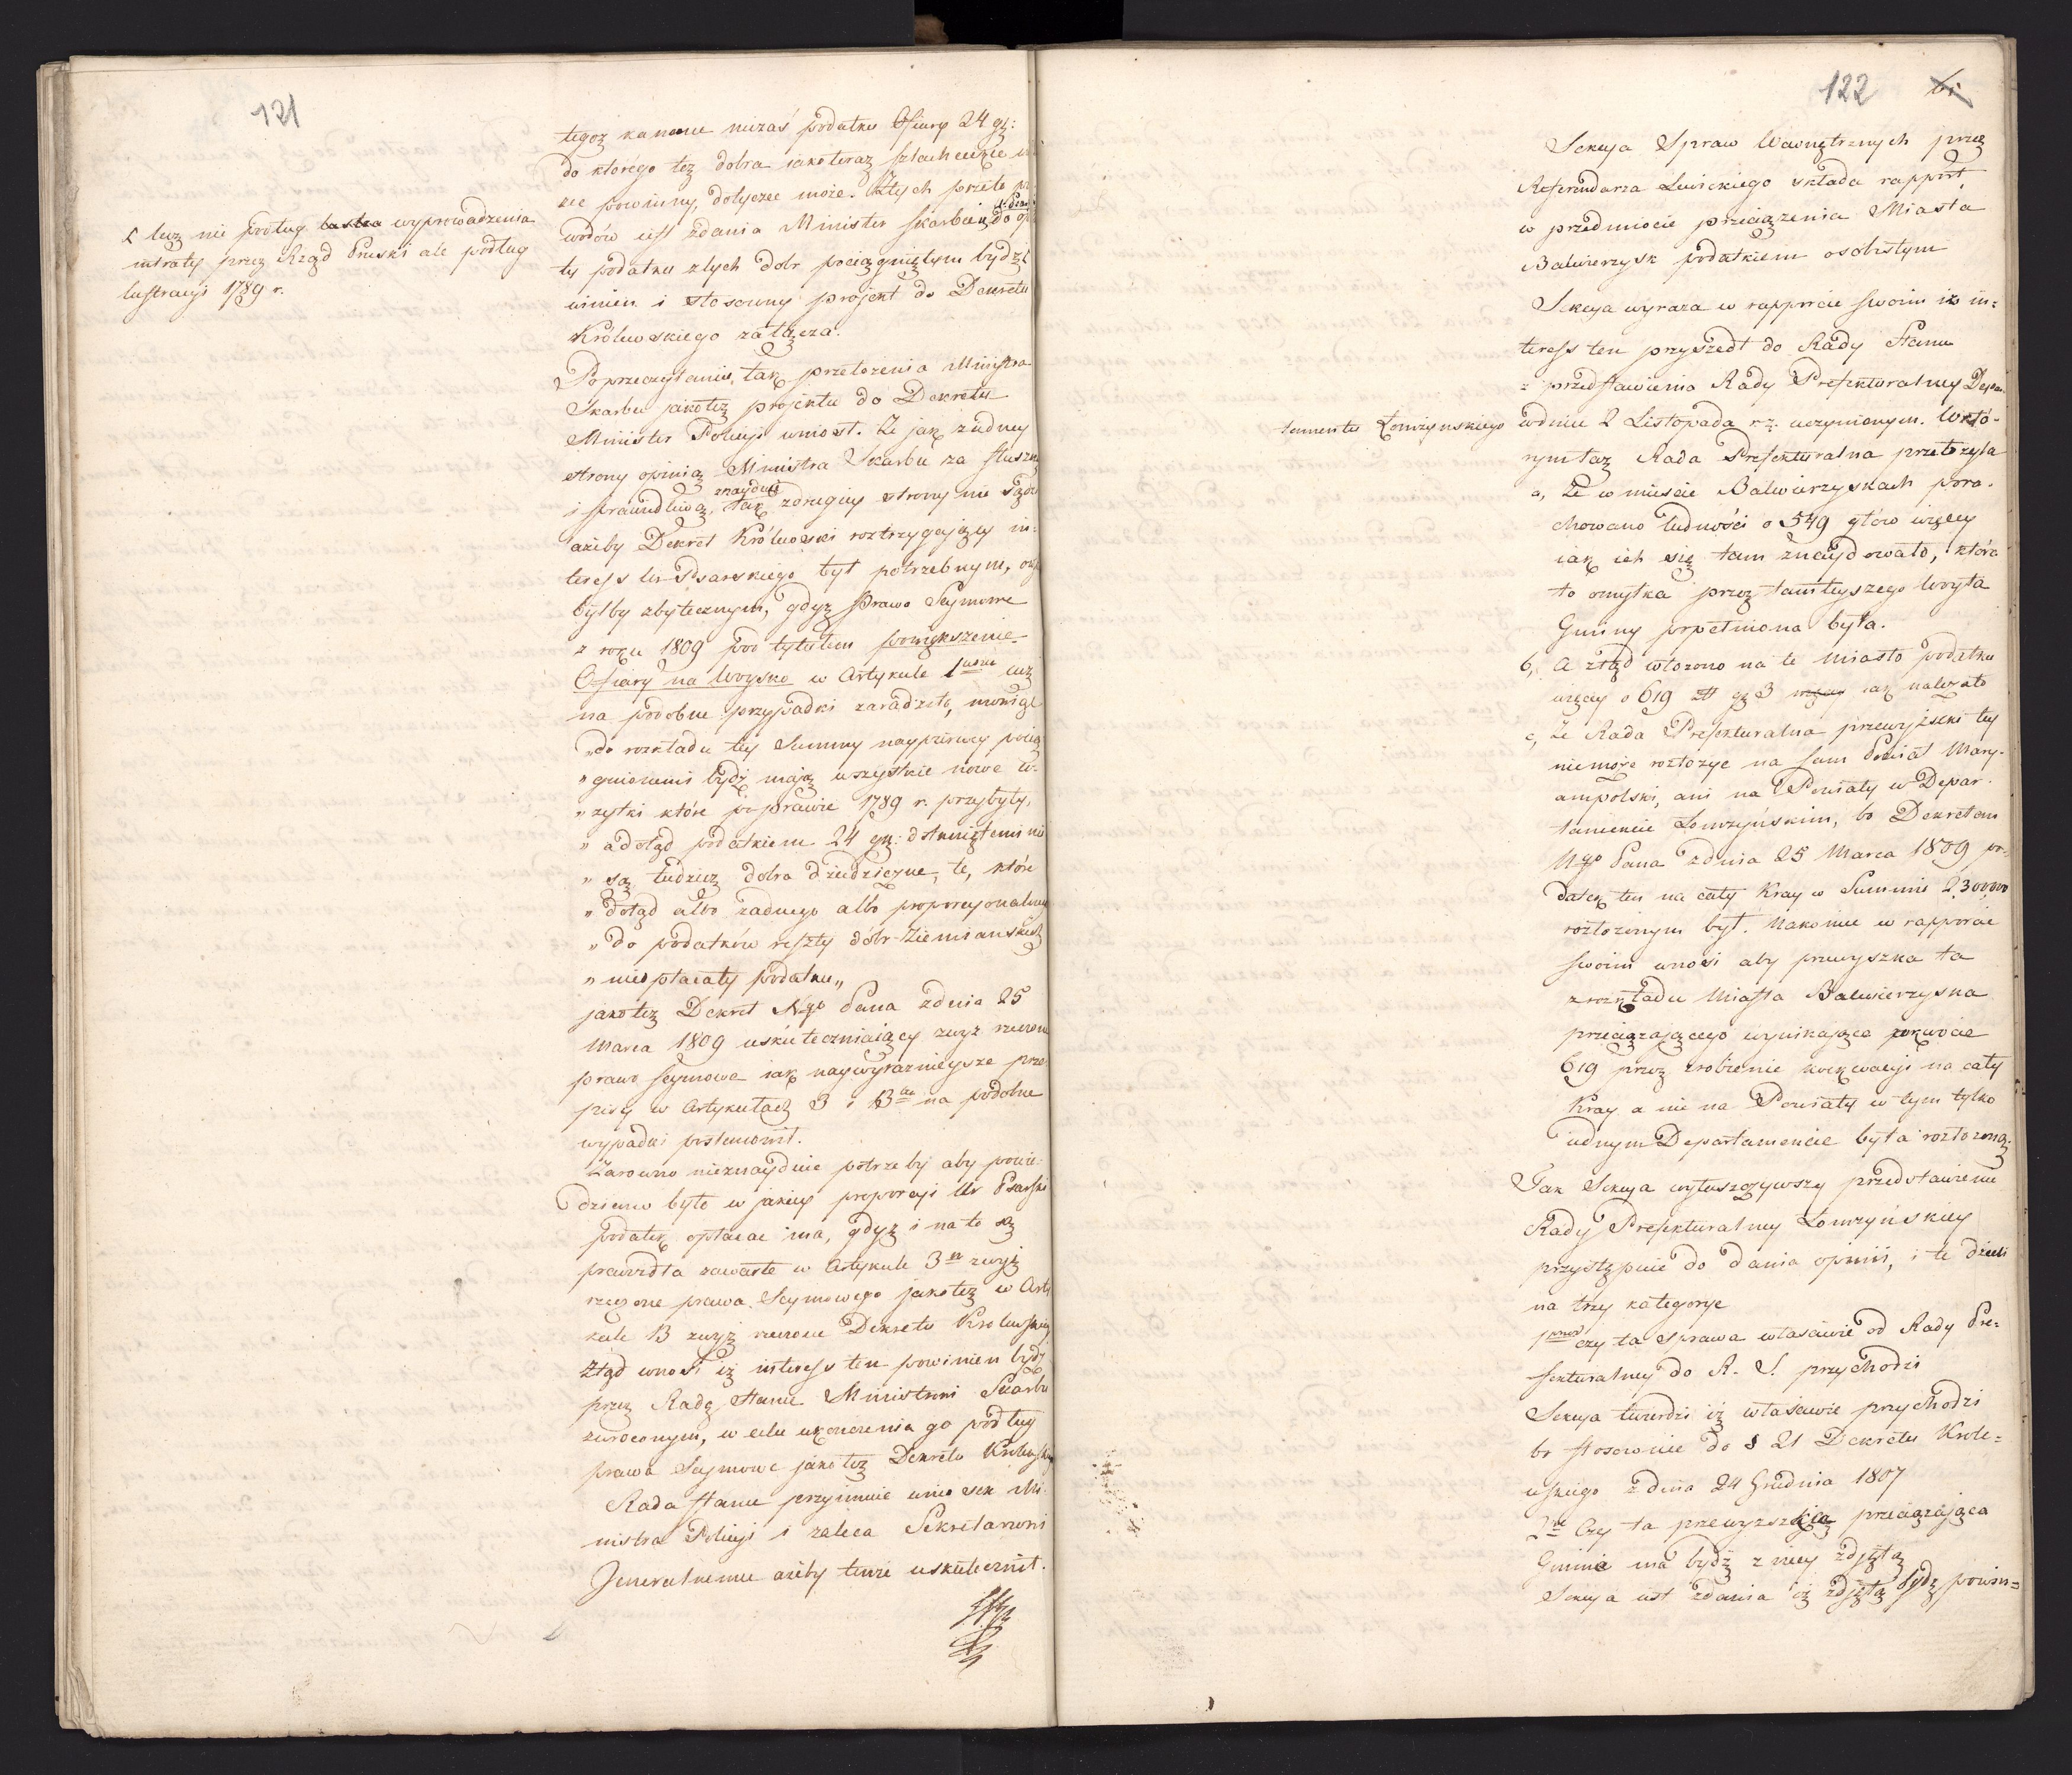 121
tegoż kanonu niżaś podatku Ofiary 24 gr:
do którego też dobra iako teraz szlacheckie
powinny, dotyczeć może. Z tych przeto
wodów iest zdania Minister Skarbu iż do
ty podatku z tych dobr pociągniętym bydź
winien i stosowny projekt do Dekretu
Królewskiego załącza.
lecz nie podług wyprowadzenia
intraty przez Rząd Pruski ale podług
lustracyi 1789 r.
Po przeczytaniu, tak przełożenia Ministra
Skarbu jakoteż projektu do Dekretu
Minister Policyi wniosł. Że jak z iedney
strony opinią Ministra Skarbu za słuszną
i sprawiedliwą znayduie, tak z drugiey strony nie sądzi
ażeby Dekret Królewski roztrzygaiący in:
teress Ur Psarskiego był potrzebnym,
byłby zbytecznym, gdyż Prawo Seymowe
z roku 1809 pod tytułem powiększenie
Ofiary na Woysko w Artykule 1
na podobne przypadki zaradziło, mówiąc
„do rozkładu tey Summy naypierwey pocią
„gnionemi bydź maią wszystkie nowe u-
„żytki które po prawie 1789 r. przybyły,
„a dotąd podatkiem 24 gr: dotkniętemi nie
„są tudzież dobra dziedziczne, te, które
„dotąd albo żadnego albo proporcyonalnego
„do podatków reszty dóbr Ziemiańskich
„nie płacały podatku„
jakoteż Dekret Ngo Pana z dnia 25
Marca 1809 uskuteczniaiący zwyż rzeczone
prawo seymowe iak naywyraźnieysze prze
pisy w Artykułach 3 i 13 na podobne
wypadki postanowił.
Zarówno nieznayduie potrzeby aby powie-
dziano było w jakiey proporcyi Ur Psarski
podatek opłacać ma, gdyż i na to są
prawidła zawarte w Artykule 3m zwyż
rzeczone prawa Seymowego jakoteż w Arty
kule 13 zwyż rzeczone Dekretu Królewskiego
Ztąd wnosi iż interess ten powinien bydź
przez Radę Stanu Ministrowi Skarbu
zwroconym, w celu ukończenia go podług
prawa Seymowe jakoteż Dekretu Królewskiego
Rada Stanu przyimuie wniosek Mi
nistra Policyi i zaleca Sekretarzowi
Jeneralnemu ażeby tenże uskutecznił.
122
Sekcya Spraw Wewnętrznych przez
Referendarza Lewickiego składa rapport,
w przedmiocie przeciążenia Miasta
Balwierzysk podatkiem osobistym
Sekcya wyraża w rapporcie swoim iż in:
teress ten przyszedł do Rady Stanu
z przedstawienia Rady Prefekturalney Depar-
tamentu Łomżynskiego w dniu 2 Listopada rż. uczynionym. W któ-
rym taż Rada Prefekturalna przełożyła
a, że w mieście Balwierzyskach pora-
chowano ludności o 549 głów więcey
iak ich się tam znaydowało, która
to omyłka przez tamteyszego Woyta
Gminy popełniona była.
b, A ztąd włożono na te Miasto podatku
więcey o 619 zł gr 3 iak należało
c, Że Rada Prefekturalna przewyżski tey
niemoże rozłożyć na sam Powiat Mary-
ampolski, ani na Powiaty w Depar-
tamencie Łomżyńskim, bo Dekretem
Ngo Pana z dnia 25 Marca 1809 po-
datek ten na cały Kray w Summie 2,300,000
rozłożonym był. Nakoniec w rapporcie
swoim wnosi aby przewyszka ta
z rozkładu Miasta Balwierzyska
przeciążaiącego wynikaiąca w kwocie
619 przez zrobienie na cały
Kray a nie na Powiaty w tym tylko
iednym Departamencie była rozłożoną.
Tak Sekcya wyłuszczywszy przedstawienie
Rady Prefekturalney Łomżyńskiey
przystępuie do dania opinii, i te dzieli
na trzy kategorye
1mo czy ta sprawa właściwie od Rady Pre:
fekturalney do R. S. przychodzi
Sekcya twierdzi iż właściwie przychodzi
bo stosownie do § 21 Dekretu Krole=
wskiego z dnia 24 Grudnia 1807
2do Czy ta przewyższka przeciążaiąca
Gminę ma bydź z niey zdjętą
Sekcya iest zdania iż zdjętą bydź powin=